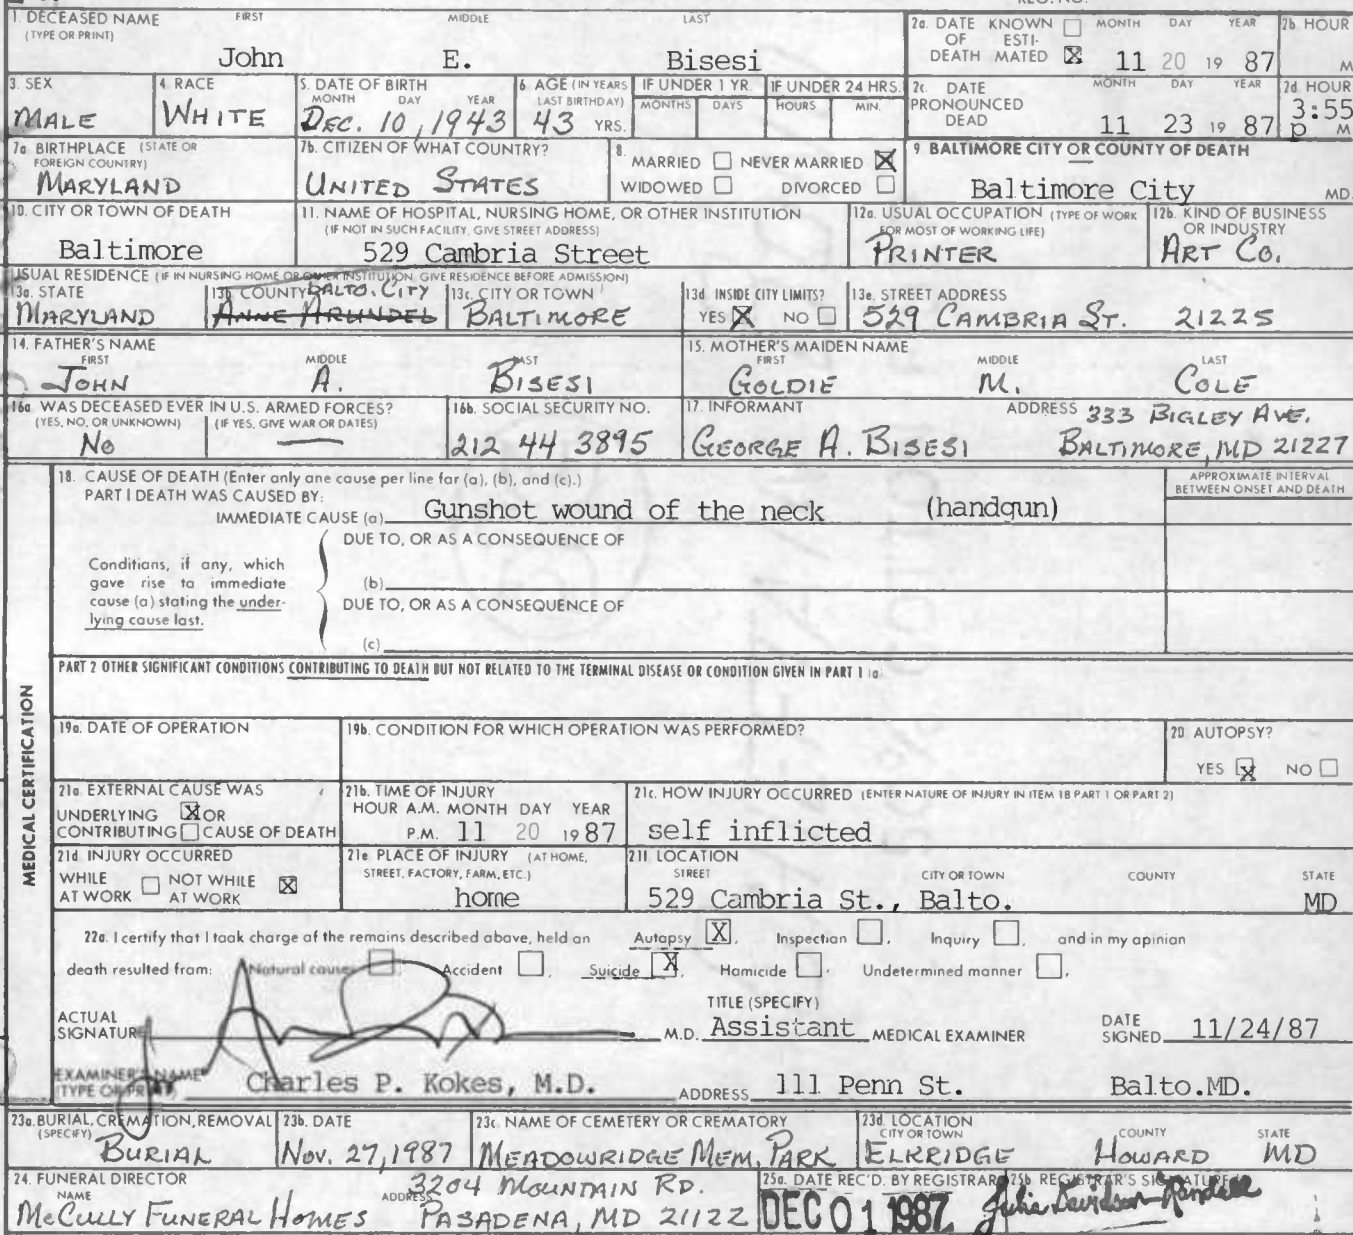 REG. NO.
1. DECEASED NAME FIRST MIDDLE LAST
(TYPE OR PRINT)
John E. Bisesi
2a. DATE KNOWN MONTH DAY YEAR 2b HOUR
OF ESTI-
DEATH MATED X 11 20 19 87 M
3. SEX 4. RACE 5. DATE OF BIRTH 6. AGE (IN YEARS IF UNDER 1 YR. IF UNDER 24 HRS.
MONTH DAY YEAR LAST BIRTHDAY) MONTHS DAYS HOURS MIN.
MALE WHITE DEC. 10, 1943 43 YRS.
2c. DATE MONTH DAY YEAR 2d HOUR
PRONOUNCED 3:55
DEAD 11 23 19 87 P M
7a. BIRTHPLACE (STATE OR
FOREIGN COUNTRY)
MARYLAND
7b. CITIZEN OF WHAT COUNTRY?
UNITED STATES
8. MARRIED NEVER MARRIED X
WIDOWED DIVORCED
9. BALTIMORE CITY OR COUNTY OF DEATH
Baltimore City MD.
10. CITY OR TOWN OF DEATH
Baltimore
11. NAME OF HOSPITAL, NURSING HOME, OR OTHER INSTITUTION
(IF NOT IN SUCH FACILITY, GIVE STREET ADDRESS)
529 Cambria Street
12a. USUAL OCCUPATION (TYPE OF WORK
FOR MOST OF WORKING LIFE)
PRINTER
12b. KIND OF BUSINESS
OR INDUSTRY
ART CO.
USUAL RESIDENCE (IF IN NURSING HOME OR OTHER INSTITUTION, GIVE RESIDENCE BEFORE ADMISSION)
13a. STATE
MARYLAND
13b. COUNTY BALTO. CITY
ANNE ARUNDEL
13c. CITY OR TOWN
BALTIMORE
13d. INSIDE CITY LIMITS?
YES X NO
13e. STREET ADDRESS
529 CAMBRIA ST. 21225
14. FATHER'S NAME
FIRST MIDDLE LAST
JOHN A. BISESI
15. MOTHER'S MAIDEN NAME
FIRST MIDDLE LAST
GOLDIE M. COLE
16a. WAS DECEASED EVER IN U.S. ARMED FORCES?
(YES, NO, OR UNKNOWN) (IF YES, GIVE WAR OR DATES)
NO —
16b. SOCIAL SECURITY NO.
212 44 3895
17. INFORMANT ADDRESS 333 BIGLEY AVE.
GEORGE A. BISESI BALTIMORE, MD 21227
MEDICAL CERTIFICATION
18. CAUSE OF DEATH (Enter only one cause per line far (a), (b), and (c).)
PART I DEATH WAS CAUSED BY:
APPROXIMATE INTERVAL
BETWEEN ONSET AND DEATH
IMMEDIATE CAUSE (a) Gunshot wound of the neck (handgun)
DUE TO, OR AS A CONSEQUENCE OF
Conditians, if any, which
gave rise ta immediate
cause (a) stating the under-
lying cause last.
(b)
DUE TO, OR AS A CONSEQUENCE OF
(c)
PART 2 OTHER SIGNIFICANT CONDITIONS CONTRIBUTING TO DEATH BUT NOT RELATED TO THE TERMINAL DISEASE OR CONDITION GIVEN IN PART 1 (a)
19a. DATE OF OPERATION
19b. CONDITION FOR WHICH OPERATION WAS PERFORMED?
20. AUTOPSY?
YES X NO
21a. EXTERNAL CAUSE WAS
UNDERLYING X OR
CONTRIBUTING CAUSE OF DEATH
21b. TIME OF INJURY
HOUR A.M. MONTH DAY YEAR
P.M. 11 20 19 87
21c. HOW INJURY OCCURRED (ENTER NATURE OF INJURY IN ITEM 18 PART 1 OR PART 2)
self inflicted
21d INJURY OCCURRED
WHILE NOT WHILE X
AT WORK AT WORK
21e PLACE OF INJURY (AT HOME,
STREET, FACTORY, FARM, ETC.)
home
21f. LOCATION
STREET CITY OR TOWN COUNTY STATE
529 Cambria St., Balto. MD
22a. I certify that I taak charge af the remains described abave, held an Autapsy X, Inspectian, Inquiry, and in my apinian
death resulted fram: Natural causes Accident, Suicide X, Hamicide, Undetermined manner,
ACTUAL
SIGNATURE M.D.
TITLE (SPECIFY)
Assistant MEDICAL EXAMINER
DATE
SIGNED 11/24/87
EXAMINER'S NAME
(TYPE OR PRINT) Charles P. Kokes, M.D. ADDRESS 111 Penn St. Balto.MD.
23a. BURIAL, CREMATION, REMOVAL
(SPECIFY)
BURIAL
23b. DATE
NOV. 27, 1987
23c. NAME OF CEMETERY OR CREMATORY
MEADOWRIDGE MEM. PARK
23d. LOCATION
CITY OR TOWN COUNTY STATE
ELKRIDGE HOWARD MD
24. FUNERAL DIRECTOR
NAME ADDRESS 3204 MOUNTAIN RD.
MCCULLY FUNERAL HOMES PASADENA, MD 21122
25a. DATE REC'D. BY REGISTRAR
DEC 01 1987
25b. REGISTRAR'S SIGNATURE
Julia Davidson-Randall